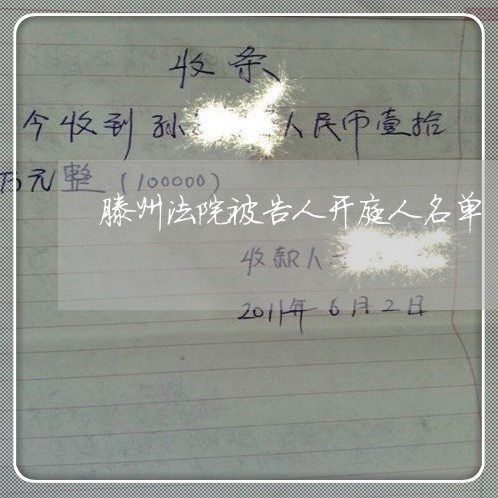 收条
今收到孙 人民币壹拾
万元整(100000)
滕州法院被告人开庭人名单
收款人
2011年6月2日